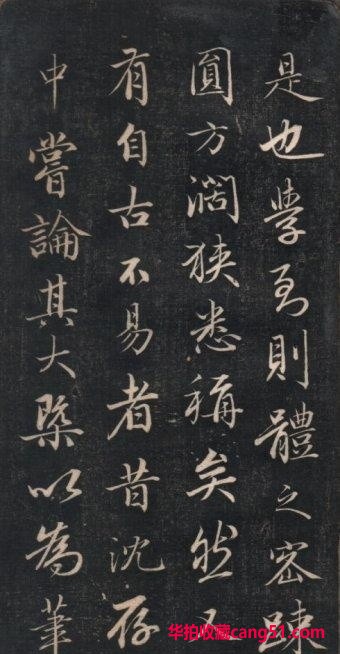 是也學至則體之密疎
圓方濶狹悉稱矣然又
有自古不易者昔沈存
中嘗論其大槩以為筆
华拍收藏cang51.com